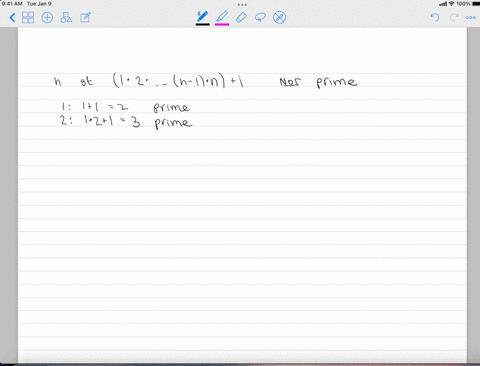 9:41 AM Tue Jan 9 100%
n st (1·2· .. (n-1)·n)+1 Not prime
1: 1+1 = 2 prime
2: 1·2+1 = 3 prime